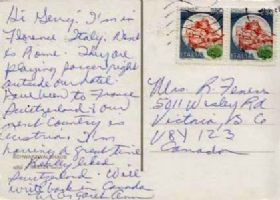 Hi Gerry! I'm in
Florence Italy. Next
is Rome. They are
playing soccer right
outside our hotel.
Been to France
Switzerland & our
next Country is
Austria. I'm
having a great time
Really liked
Switzerland. Will
write back in Canada
Ann
ITALIA
ITALIA
Mrs. R.
5211 Wesley Rd
Victoria B. Co
V8Y 1Z3
Canada